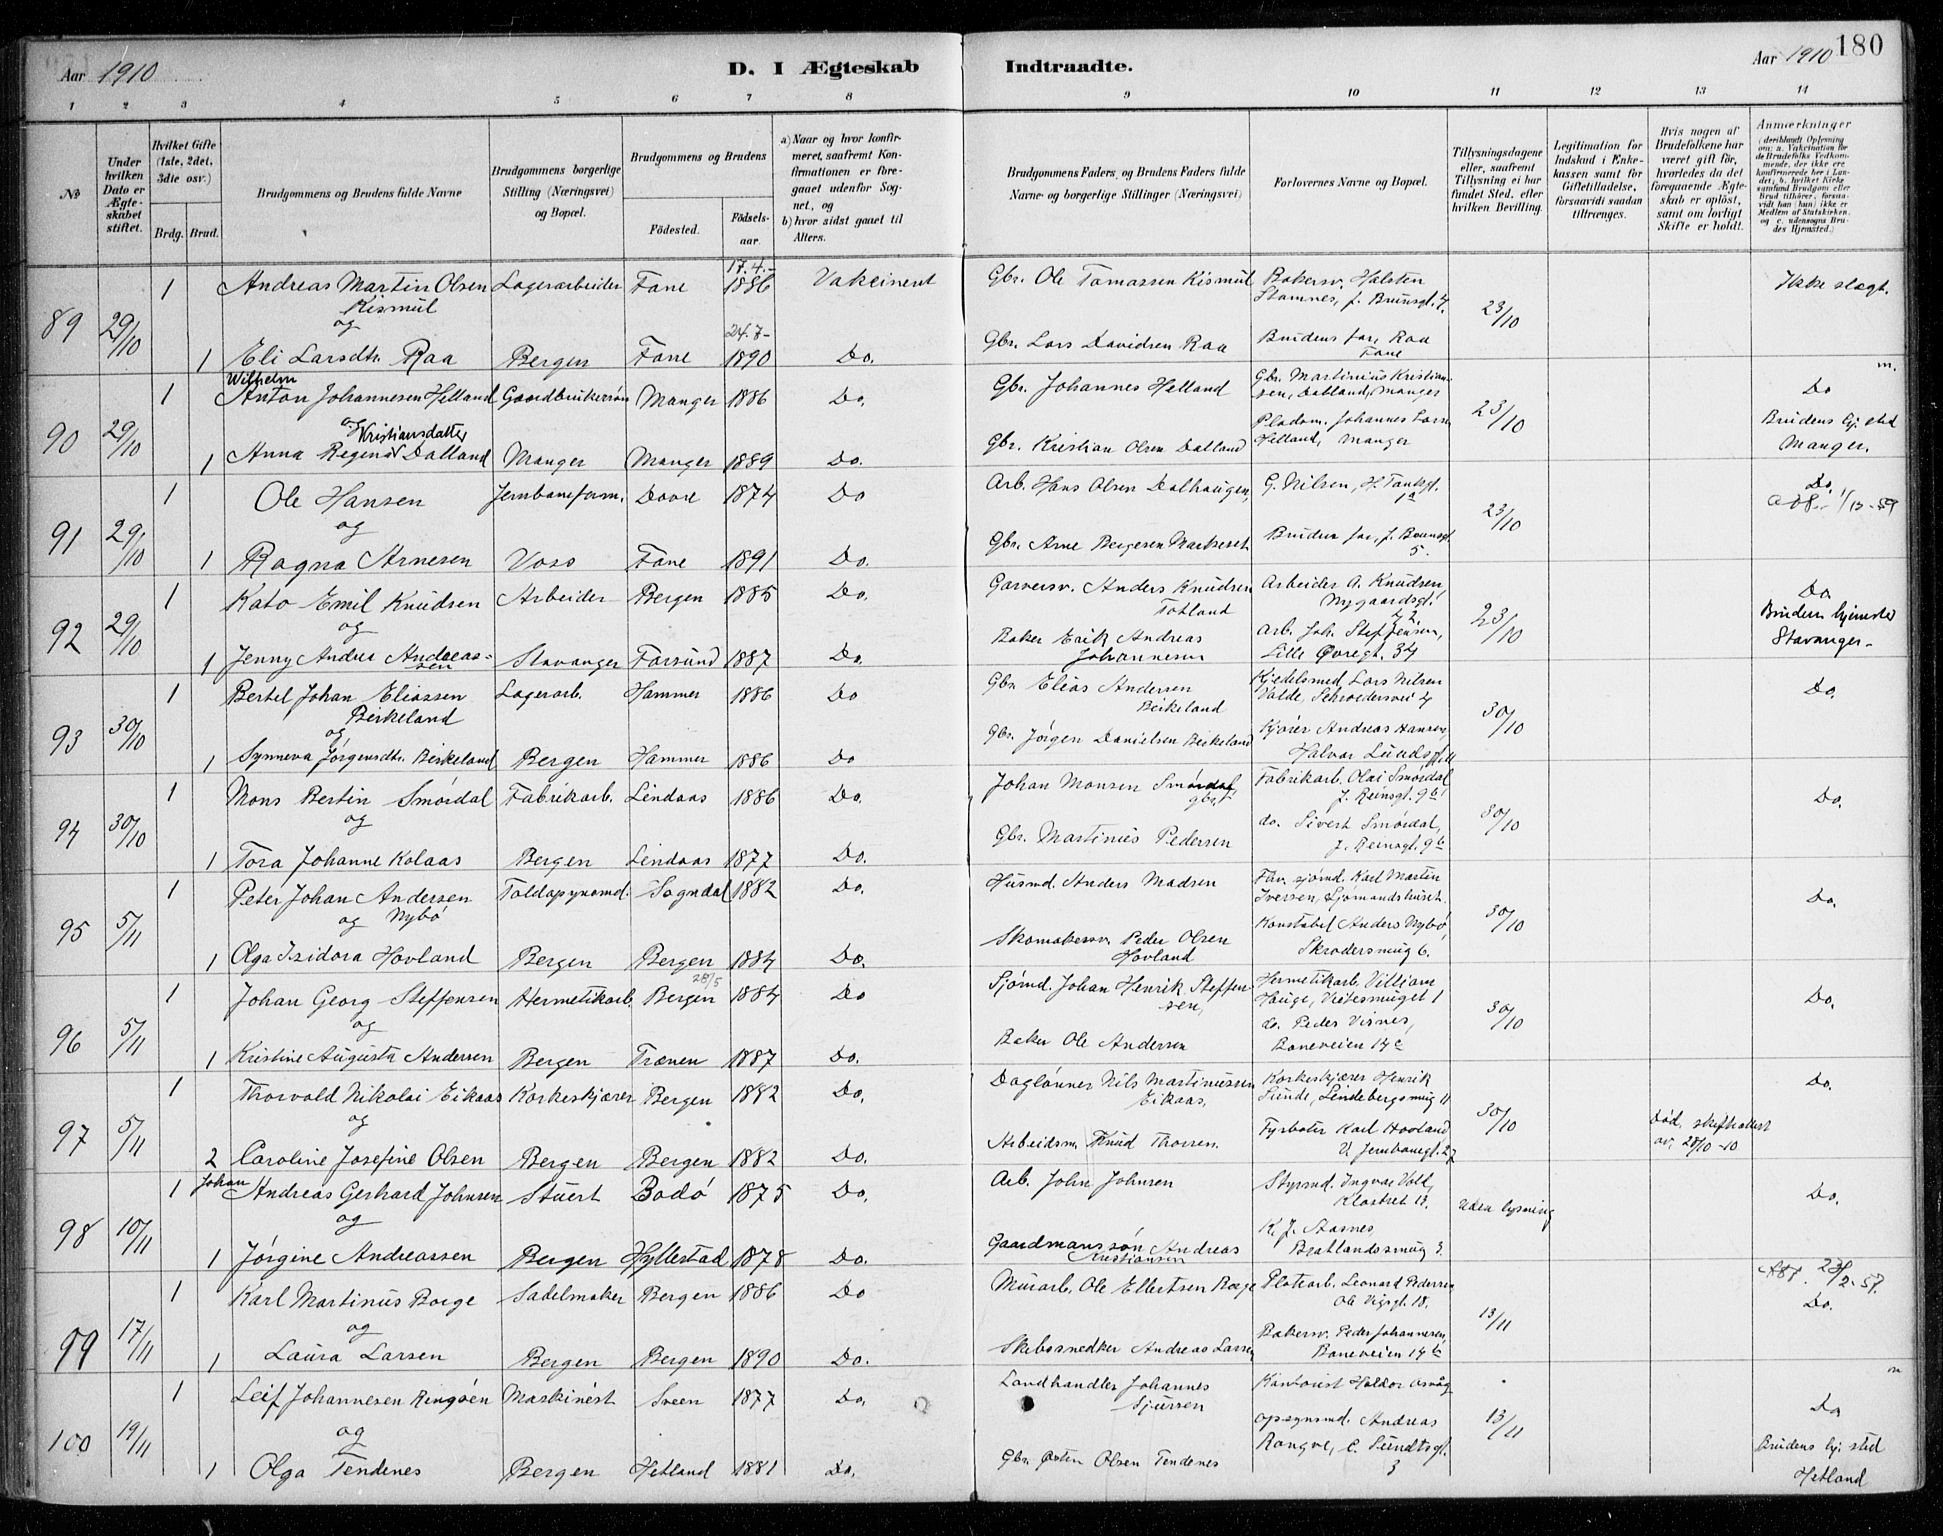 180
Aar 1910
D. I Ægteskab
Indtraadte.
Aar 1910
1 2 3 4 5 6 7 8 9 10 11 12 13 14
No
Under hvilken Dato er Ægteskabet stiftet.
Hvilket Gifte (1ste, 2det, 3die osv.)
Brdg. Brud.
Brudgommens og Brudens fulde Navne
Brudgommens borgerlige Stilling (Næringsvei) og Bopæl.
Brudgommens og Brudens
Födested.
Födselsaar.
a) Naar og hvor konfirmeret, saafremt Konfirmationen er foregaaet udenfor Sognet, og
b) hvor sidst gaaet til Alters.
Brudgommens Faders og Brudens Faders fulde Navne og borgerlige Stillinger (Næringsvei)
Forlovernes Navne og Bopæl.
Tillysningsdagene eller, saafremt Tillysning ei har fundet Sted, efter hvilken Bevilling.
Legitimation for Indskud i Enkekassen samt for Giftetilladelse, forsaavidt saadan tiltrænges.
Hvis nogen af Brudefolkene har været gift för, hvorledes da det foregaaende Ægteskab er oplöst, samt om lovligt Skifte er holdt.
Anmærkninger
(deriblandt Oplysning om: a. Vakcination for de Brudefolks Vedkommende, der ikke ere konfirmerede her i Landet; b. hvilket Kirkesamfund Brudgom eller Brud tilhörer, forsaavidt han (hun) ikke er Medlem af Statskirken, og c. udensogns Brudes Hjemsted.)
89 29/10 1 Andreas Martin Olsen Kismul Lagerarbeider Fane 17.4.- 1886 Vakcinert Gbr. Ole Tomassen Kismul Bakersv. Halsten Stamnes, J. Brunsgt. 4. 23/10 Ikke slægt.
og
1 Eli Larsdtr. Raa Bergen Fane 24.7- 1890 Do. Gbr. Lars Davidsen Raa Brudens far, Raa Fane
90 29/10 1 Wilhelm Anton Johannesen Helland Gaardbrukersøn Manger 1886 Do. Gbr. Johannes Helland Gbr. Martinius Kristiansen, Dalland, Manger 23/10 Do m.
og
1 Anna Regena Kristiansdatter Dalland Manger Manger 1889 Do. Gbr. Kristian Olsen Dalland Pladsm. Johannes Larsn Helland, Manger Brudens hj. sted Manger.
91 29/10 1 Ole Hansen Jernbaneform. Dovre 1874 Do Arb. Hans Olsen Dalhaugen, G. Nilsen, H. Tanksgt. 1a 23/10 Do.
og
1 Ragna Arnesen Voss Fane 1891 Do. Gbr. Arne Bergesen Marknest Brudens far, J. Brunsgt. 5.
92 29/10 1 Kato Emil Knudsen Arbeider Bergen 1885 Do. Garversv. Anders Knudsen Totland Arbeider A. Knudsen Nygaardsgt. 42. 23/10 Do
og
1 Jenny Andrea Andreassen Stavanger Farsund 1887 Do. Baker Erik Andreas Johannesen Arb. Joh. Steffensen, Lille Øvregt. 34 Brudens hjemsted Stavanger-
93 30/10 1 Bertel Johan Eliassen Birkeland Lagerarb. Hammer 1886 Do Gbr. Elias Andersen Beikeland Kjedelsmed Lars Nilsen Valde, Schroedersvei 4 30/10 Do.
og
1 Synneva Jørgensdtr. Birkeland Bergen Hammer 1886 Do Gbr. Jørgen Danielsen Birkeland Kjører Andreas Hansen, Halvar Lundsgt. 11
94 30/10 1 Mons Bertin Smørdal Fabrikarb. Lindaas 1886 Do. Johan Monsen Smørdal, gbr. Fabrikarb. Olai Smørdal J. Reinsgt. 9b 30/10 Do.
og
1 Tora Johanne Kolaas Bergen Lindaas 1877 Do. Gbr. Martinus Pedersen do. Sivert Smørdal, J. Reinsgt. 9b
95 5/11 1 Peter Johan Andersen Nybø Toldopsynsmd. Sogndal 1882 Do. Husmd. Anders Madsen Fhv. sjømd. Karl Martin Iversen, Sjømandshuset. 30/10 Do.
og
1 Olga Isidora Hovland Bergen Bergen 1884 Do. Skomakersv. Peder Olsen Hovland Konstabel Anders Nybø, Skrødersmug 6.
96 5/11 1 Johan Georg Steffensen Hermetikarb. Bergen 28/5 1884 Do Sjømd. Johan Henrik Steffensen, Hermetikarb. Villiam Hauge, Vistesmuget 1 30/10 Do.
og
1 Kristine Augusta Andersen Bergen Trænen 1887 Do. Baker Ole Andersen do. Peder Visnes, Baneveien 14c
97 5/11 1 Thorvald Nikolai Eikaas Korkeskjærer Bergen 1882 Do. Daglønner Nils Martinussen Eikaas, Korkeskjærer Henrik Sunde, Lindebergsmug 11 30/10 Do.
og
2 Caroline Josefine Olsen Bergen Bergen 1882 Do. Arbeidsm. Knud Thorsen. Fyrbøter Karl Hovland V. Jernbanegt. 27 Død, skifteattest av. 28/10-10
98 10/11 1 Johan Andreas Gerhard Johnsen Stuert Bodø 1875 Do. Arb. John Johnsen Styrmd. Ingvar Vold, Klostret 13. Uden lysning Do.
og
1 Jørgine Andreassen Bergen Hyllestad 1878 Do. Gaardmanssøn Andreas Kristiansen K. J. Starnes Bratlandssmug 3.
99 17/11 1 Karl Martinus Borge Sadelmaker Bergen 1886 Do Murarb. Ole Ellertsen Borge Platearb. Leonard Pedersen Ole Vigsgt. 18. 13/11 Do.
og
1 Laura Larsen Bergen Bergen 1890 Do. Skibssnedker Andreas Larsen Bakersv. Peder Johannesen, Baneveien 14b
100 19/11 1 Leif Johannesen Ringøen Maskinest Sveen 1877 Do. Landhandler Johannes Sjursen Kontorist Haldor Osvåg 13/11 Do m
og
1 Olga Tendenes Bergen Hetland 1881 Do. Gbr. Østen Olsen Tendenes opsynsmd. Andreas Rongve, C. Sundtsgt. 3 Brudens hj. sted Hetland